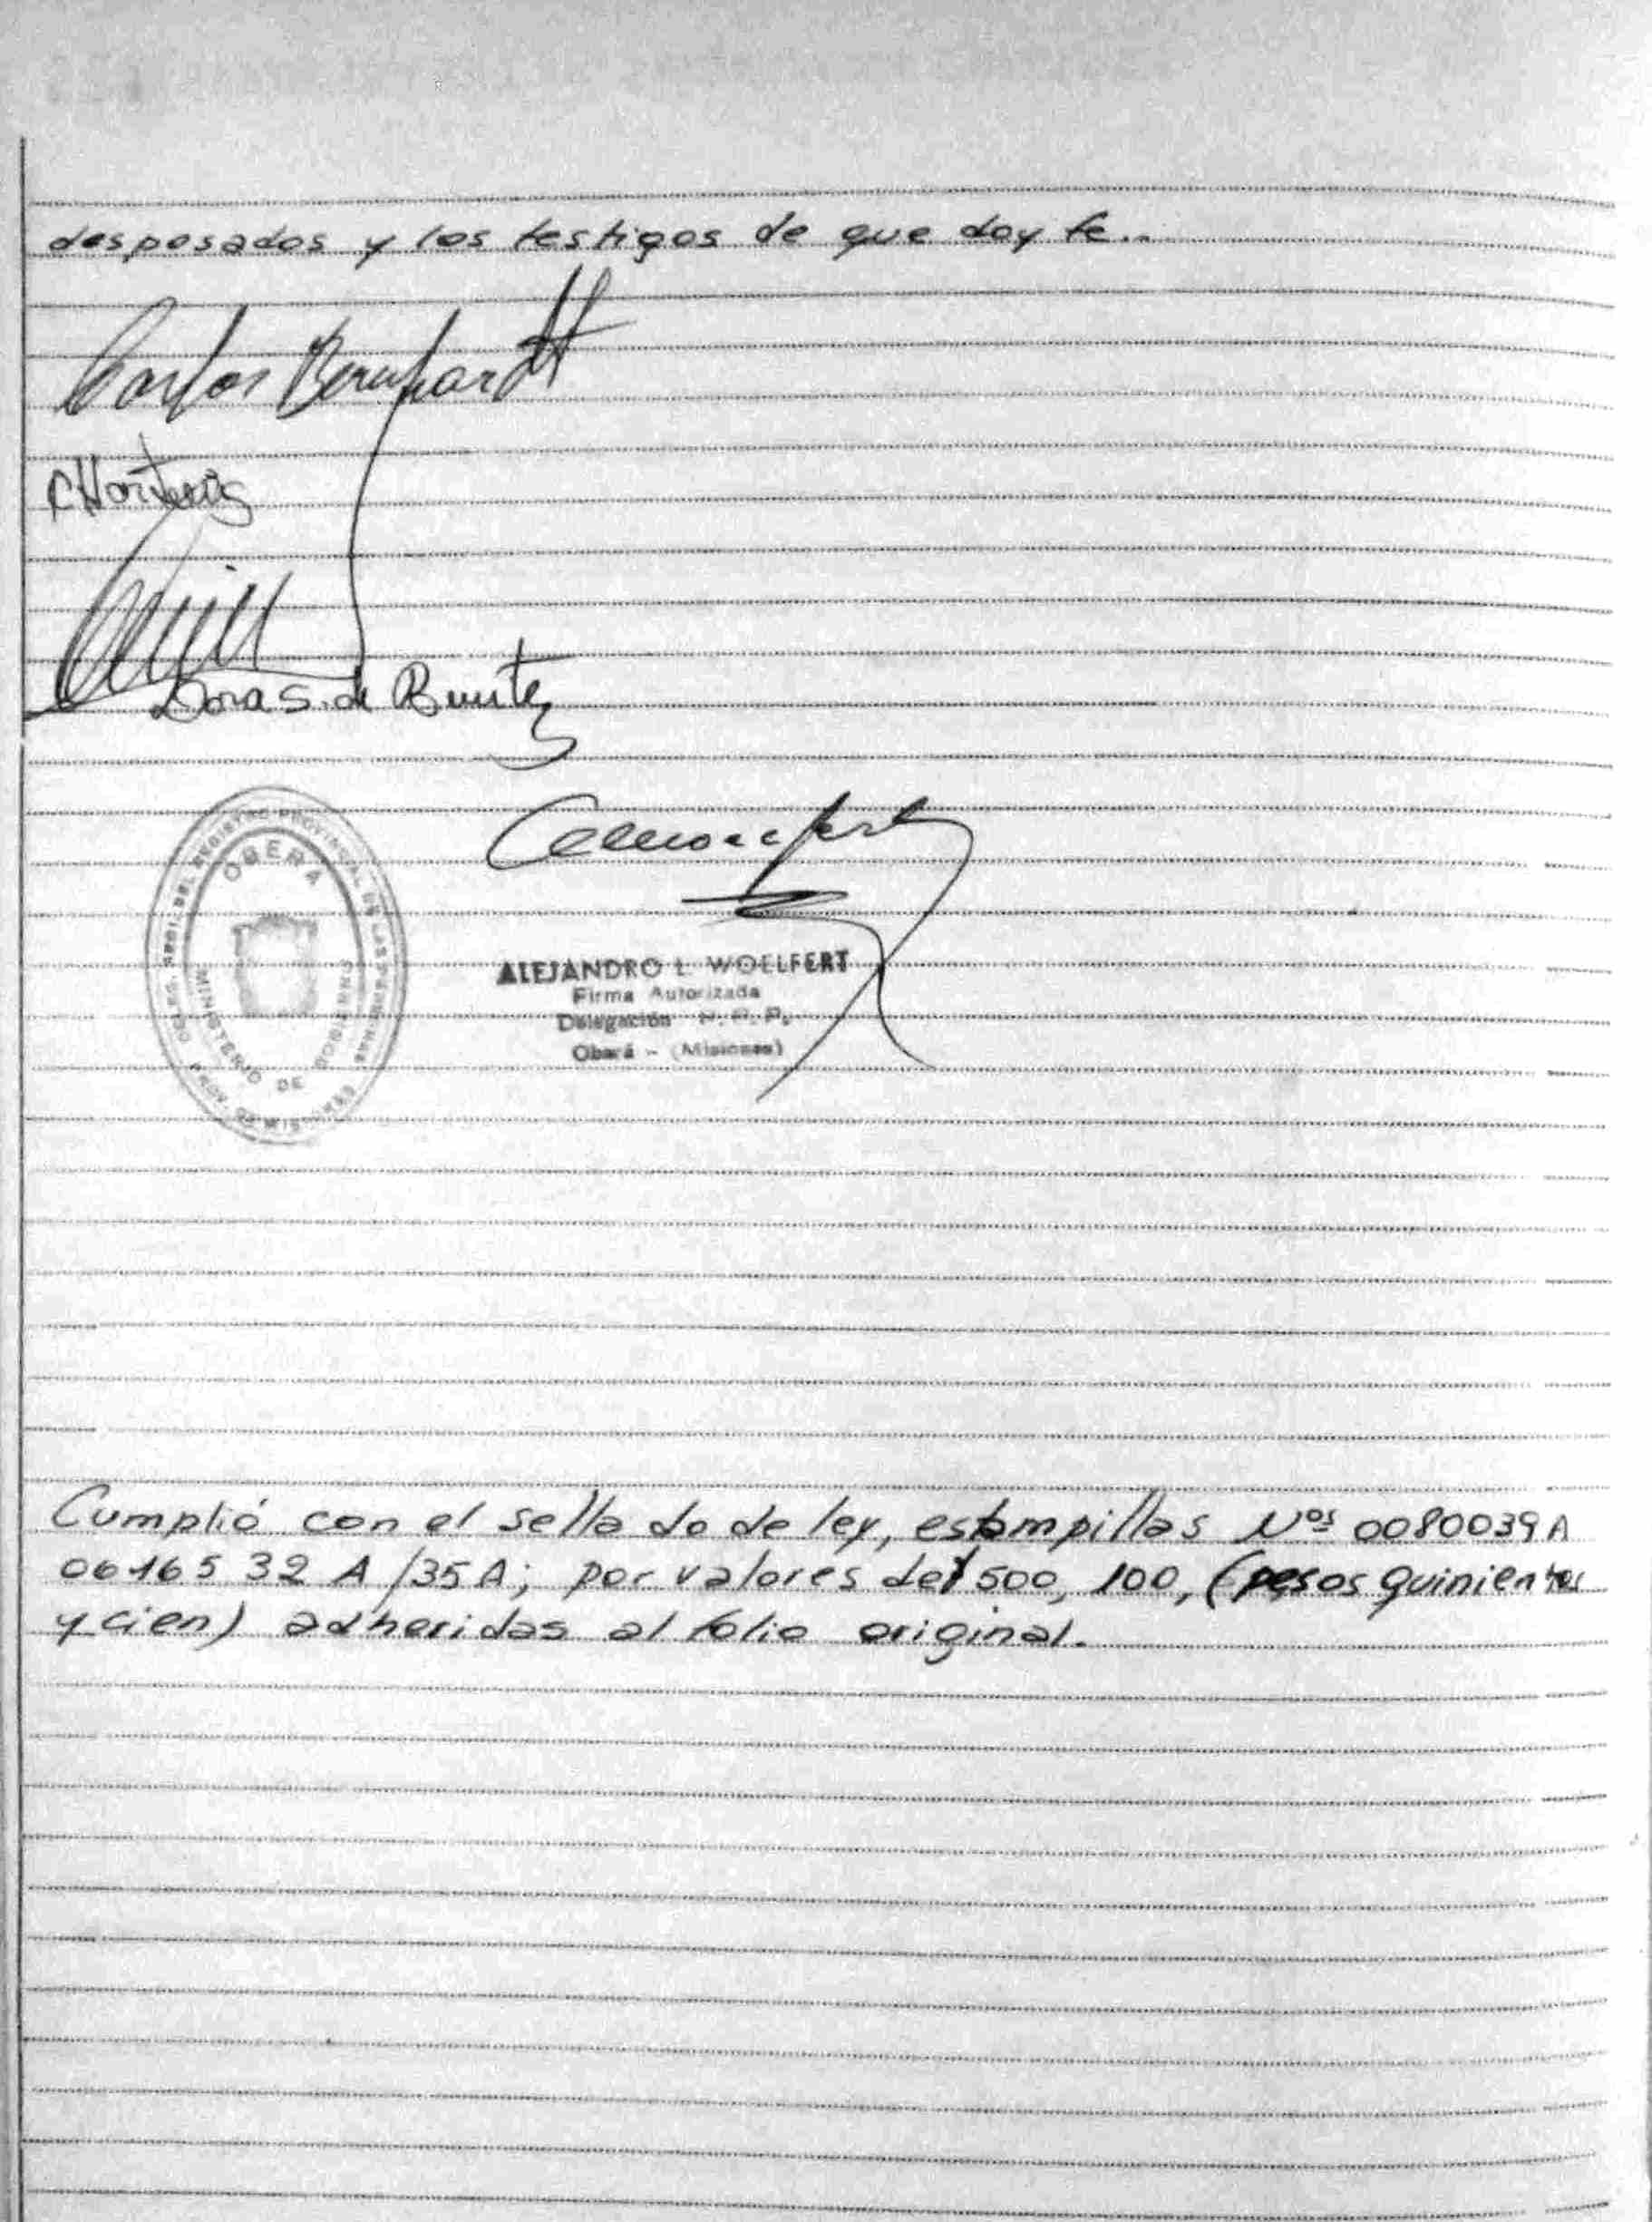 desposados y los testigos de que doy fe..
Carlos Bernhardt
Dora S. de Benitez
OBERA
MINISTERIO DE GOBIERNO
PROV. DE MISIONES
ALEJANDRO L. WOELFERT
Firma Autorizada
Delegación R. P. P.
Oberá - (Misiones)
Cumplió con el sellado de ley, estampillas Nos 0080039A
0616532 A /35A; por valores de $ 500, 100, (pesos quinientos
y cien) adheridas al folio original.